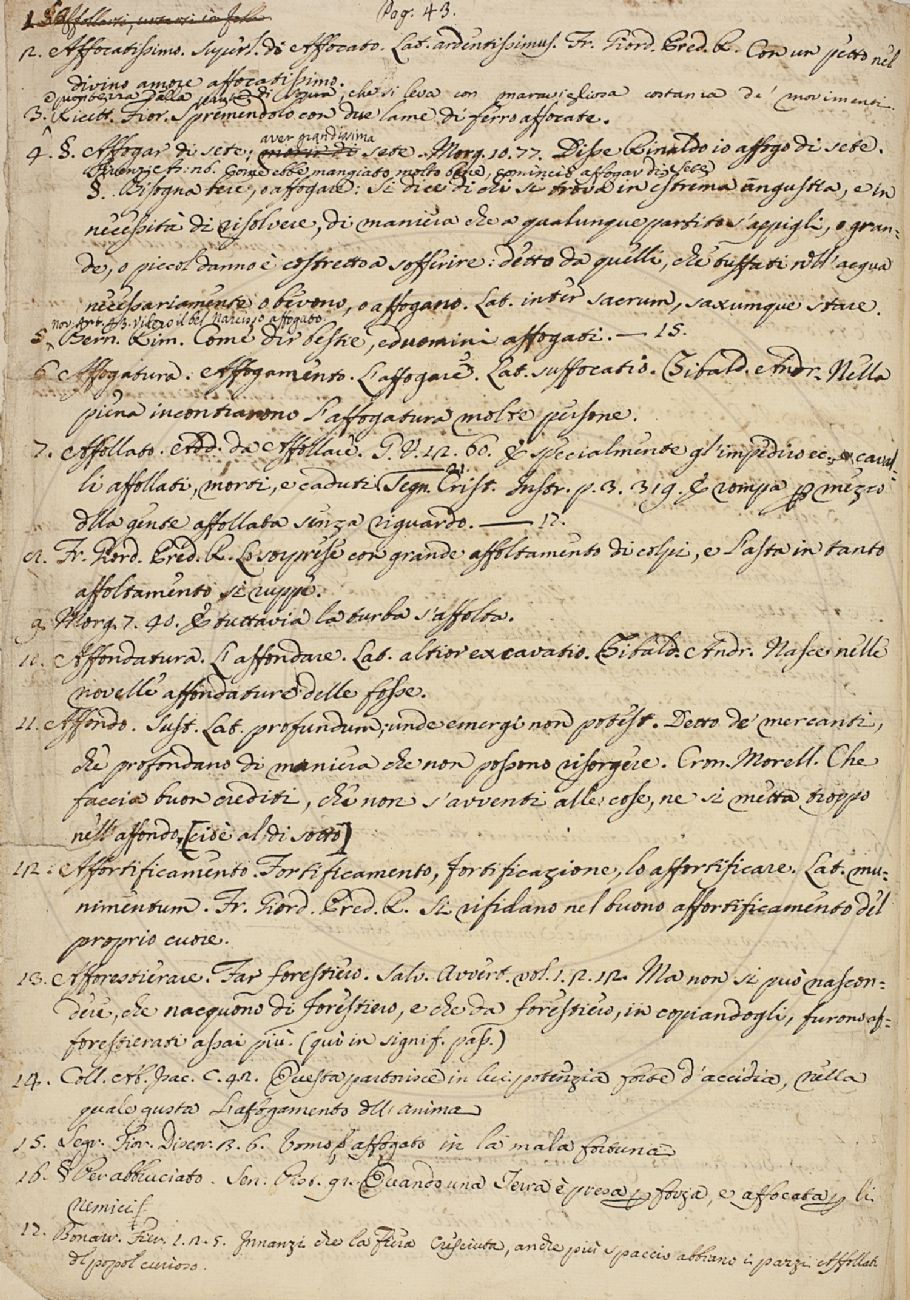 Pag. 43.
1. §. Affollarsi, urtarsi in folla
2. Affocatissimo. Superl. di Affocato. Lat. ardentissimus. Fr. Giord. Pred. R. Con un petto nel
divino amore affocatissimo.
che si leva con maravigliosa costanza de' movimenti
3. Ricett. Fior. Spremendolo con due lame di ferro affocate.
aver grandissima
4. §. Affogar di sete; morir di sete. Morg. 10. 77. Disse Rinaldo io affogo di sete.
Come ebbe mangiato molto bene, cominciò affogar di sete
§. Bisogna bere, o affogare: si dice di chi si trova in estrema angustia, e in
necessità di risolvere, di maniera che a qualunque partito s'appigli, o gran-
de, o piccol danno è costretto a soffrire: detto da quelli, che tuffati nell'acqua
necessariamente o bevono, o affogano. Lat. inter sacrum, saxumque stare.
nov. Ant. 43. Videro il bel Narcisso affogato.
5. Bern. Rim. Come dir bestie, ed uomini affogati. — 15.
6. Affogatura. Affogamento. L'affogare. Lat. suffocatio. Tibald. Andr. Nella
piena incontrarono l'affogatura molte persone.
7. Affollato. Add. da Affollare. G. V. 12. 60. E specialmente gl'impediro ec. caval-
li affollati, morti, e caduti. Segn. Crist. Instr. p. 3. 319. E rompa p mezzo
dlla gente affollata senza riguardo. — 17.
8. Fr. Giord. Pred. R. Lo sorprese con grande affoltamento di colpi, e l'asta in tanto
affoltamento si ruppe.
9. Morg. 7. 40. E tuttavia la turba s'affolta.
10. Affondatura. L'affondare. Lat. altior excavatio. Tibald. Andr. Nasce nelle
novelle affondature delle fosse.
11. Affondo. Sust. Lat. profundum, unde emergi non potest. Detto de' mercanti,
che profondano di maniera che non possono risorgere. Cron. Morell. Che
faccia buon crediti, che non s'avventi alle cose, ne si metta troppo
nell'affondo, [cioè al di sotto]
12. Affortificamento. Fortificamento, fortificazione, lo affortificare. Lat. mu-
nimentum. Fr. Giord. Pred. R. Si rifidano nel buono affortificamento del
proprio cuore.
13. Afforestierare. Far forestiero. Salv. Avvert. vol. 1. 2. 12. Ma non si può nascon-
dere, che nacquono di forestiero, e che da forestiero, in copiandogli, furono af-
forestierati assai più. (quì in signif. pass.)
14. Coll. Ab. Isac. C. 42. Questa partorisce in lei potenzia forte d'accidia, nella
quale gusta l'affogamento dll'anima
15. Segr. Fior. Discor. 2. 6. affogato in la mala fortuna
16. § Per abbruciato. Sen. Pist. 91. Quando una Terra è presa p forza, e affocata p li
nemici
17. Bonarr. Fier. 1. 2. 5. Innanzi che la Fiera cresciuta, anche più spaccio abbiano i pazzi Affollati
di popol curioso.